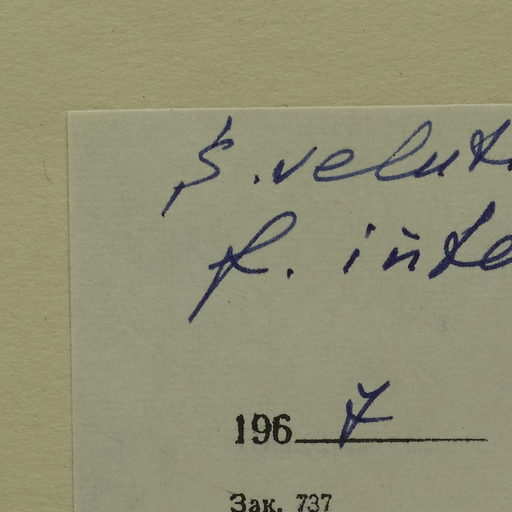 S. velut
f. inte
196 7
Зак. 737